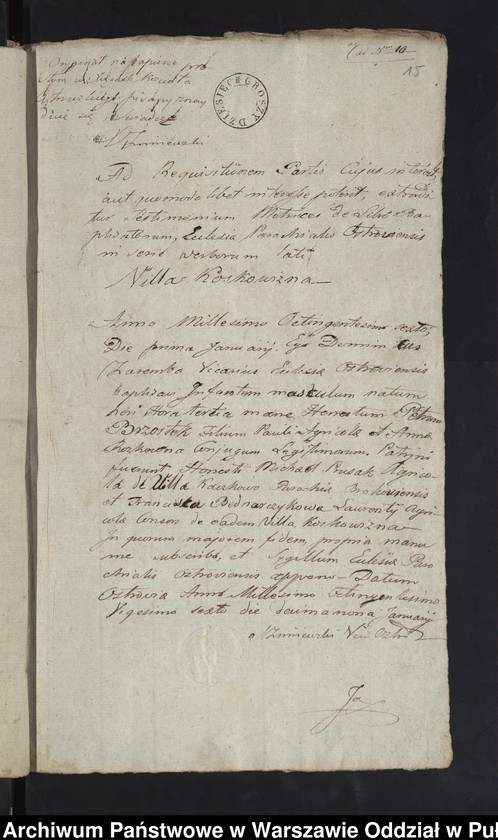 Ad Nrm 10
15
Oryginał na papierze
DZIESIĘĆ GROSZY
Ad Requisitionem Partis Cujus interest
aut quomodolibet interesse poterit, extradi
tur Testimonium Metrices de Libro Ba
phisatorum, Eclesia Parochialis Ostroviensis
in serie verborum tali
Villa Koskowizna
Anno Millesimo Octingentesimo sexto,
Die prima Januarij. Ego Dominicus
Zaremba Vicarius Eclesia Ostroviensis
baphzavi Infantem masculum natum
heri Hora tertia mane Honestum Petrum
Brzostek Filium Pauli Agricola et Anna
Conjugum Legitimarum. Patrini
fuerunt Honesti Michael Prusak Agrico
la de Villa Kaczkowo Parochia Brokoviensis
et Francisca Bednarczykowa Laurenty Agri
cola Consors de eadem Villa Koskowizna
In quorum majorem fidem, propria manu
me subscribo, et Sygillum Eclesia Paro
chialis Ostroviensis appono – Datum
Ostrovia Anno Millesimo Octingentesimo
Vigesimo sexto die decimanona Januarij
Archiwum Państwowe w Warszawie Oddział w Puł